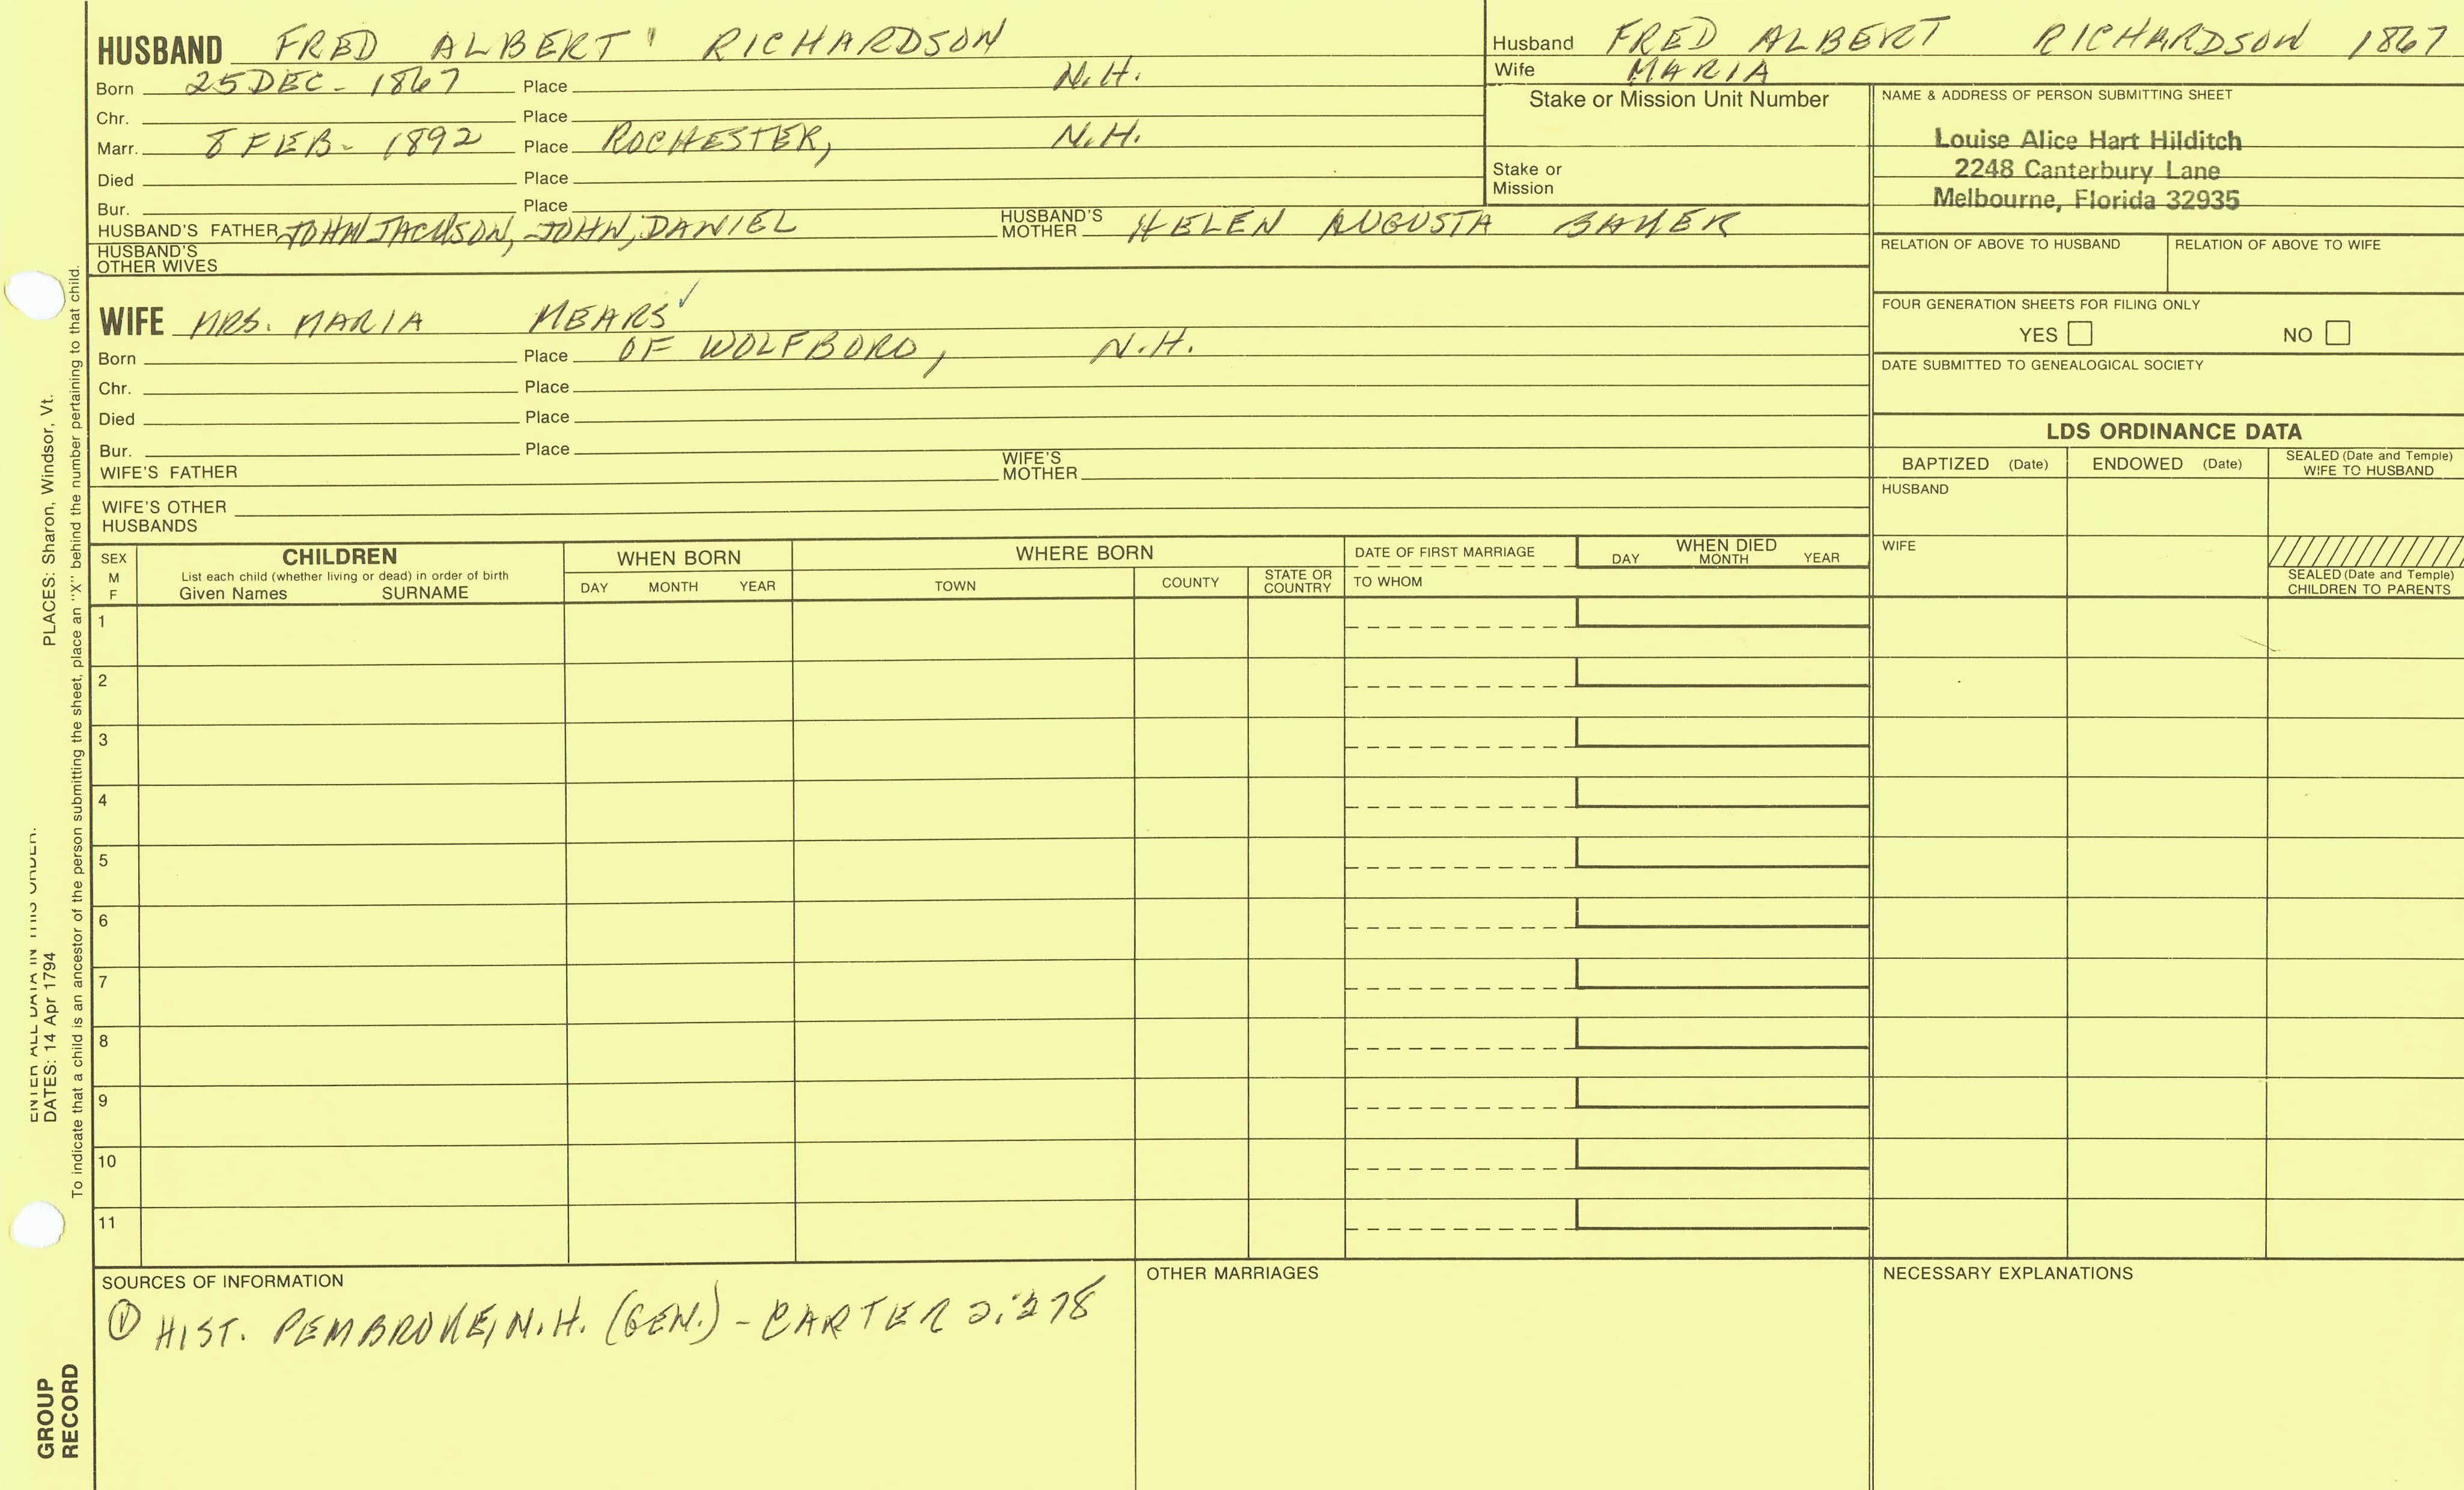 HUSBAND FRED ALBERT RICHARDSON
Born 25 DEC - 1867 Place N.H.
Chr. Place
Marr. 8 FEB - 1892 Place ROCHESTER, N.H.
Died Place
Bur. Place
HUSBAND'S FATHER JOHN JACKSON, JOHN, DANIEL HUSBAND'S MOTHER HELEN AUGUSTA BAKER
HUSBAND'S OTHER WIVES
WIFE MRS. MARIA MEARS
Born Place OF WOLFBORO, N.H.
Chr. Place
Died Place
Bur. Place
WIFE'S FATHER WIFE'S MOTHER
WIFE'S OTHER HUSBANDS
Husband FRED ALBERT RICHARDSON 1867
Wife MARIA
Stake or Mission Unit Number
Stake or Mission
NAME & ADDRESS OF PERSON SUBMITTING SHEET
Louise Alice Hart Hilditch
2248 Canterbury Lane
Melbourne, Florida 32935
RELATION OF ABOVE TO HUSBAND RELATION OF ABOVE TO WIFE
FOUR GENERATION SHEETS FOR FILING ONLY
YES NO
DATE SUBMITTED TO GENEALOGICAL SOCIETY
LDS ORDINANCE DATA
BAPTIZED (Date) ENDOWED (Date) SEALED (Date and Temple) WIFE TO HUSBAND
HUSBAND
WIFE
SEALED (Date and Temple)
CHILDREN TO PARENTS
SEX M F
CHILDREN
List each child (whether living or dead) in order of birth
Given Names SURNAME
WHEN BORN
DAY MONTH YEAR
WHERE BORN
TOWN COUNTY STATE OR COUNTRY
DATE OF FIRST MARRIAGE
TO WHOM
WHEN DIED
DAY MONTH YEAR
1
2
3
4
5
6
7
8
9
10
11
SOURCES OF INFORMATION
① HIST. PEMBROKE, N.H. (GEN.) - CARTER 2:278
OTHER MARRIAGES
NECESSARY EXPLANATIONS
ENTER ALL DATA IN THIS ORDER:
DATES: 14 Apr 1794 PLACES: Sharon, Windsor, Vt.
To indicate that a child is an ancestor of the person submitting the sheet, place an "X" behind the number pertaining to that child.
GROUP
RECORD